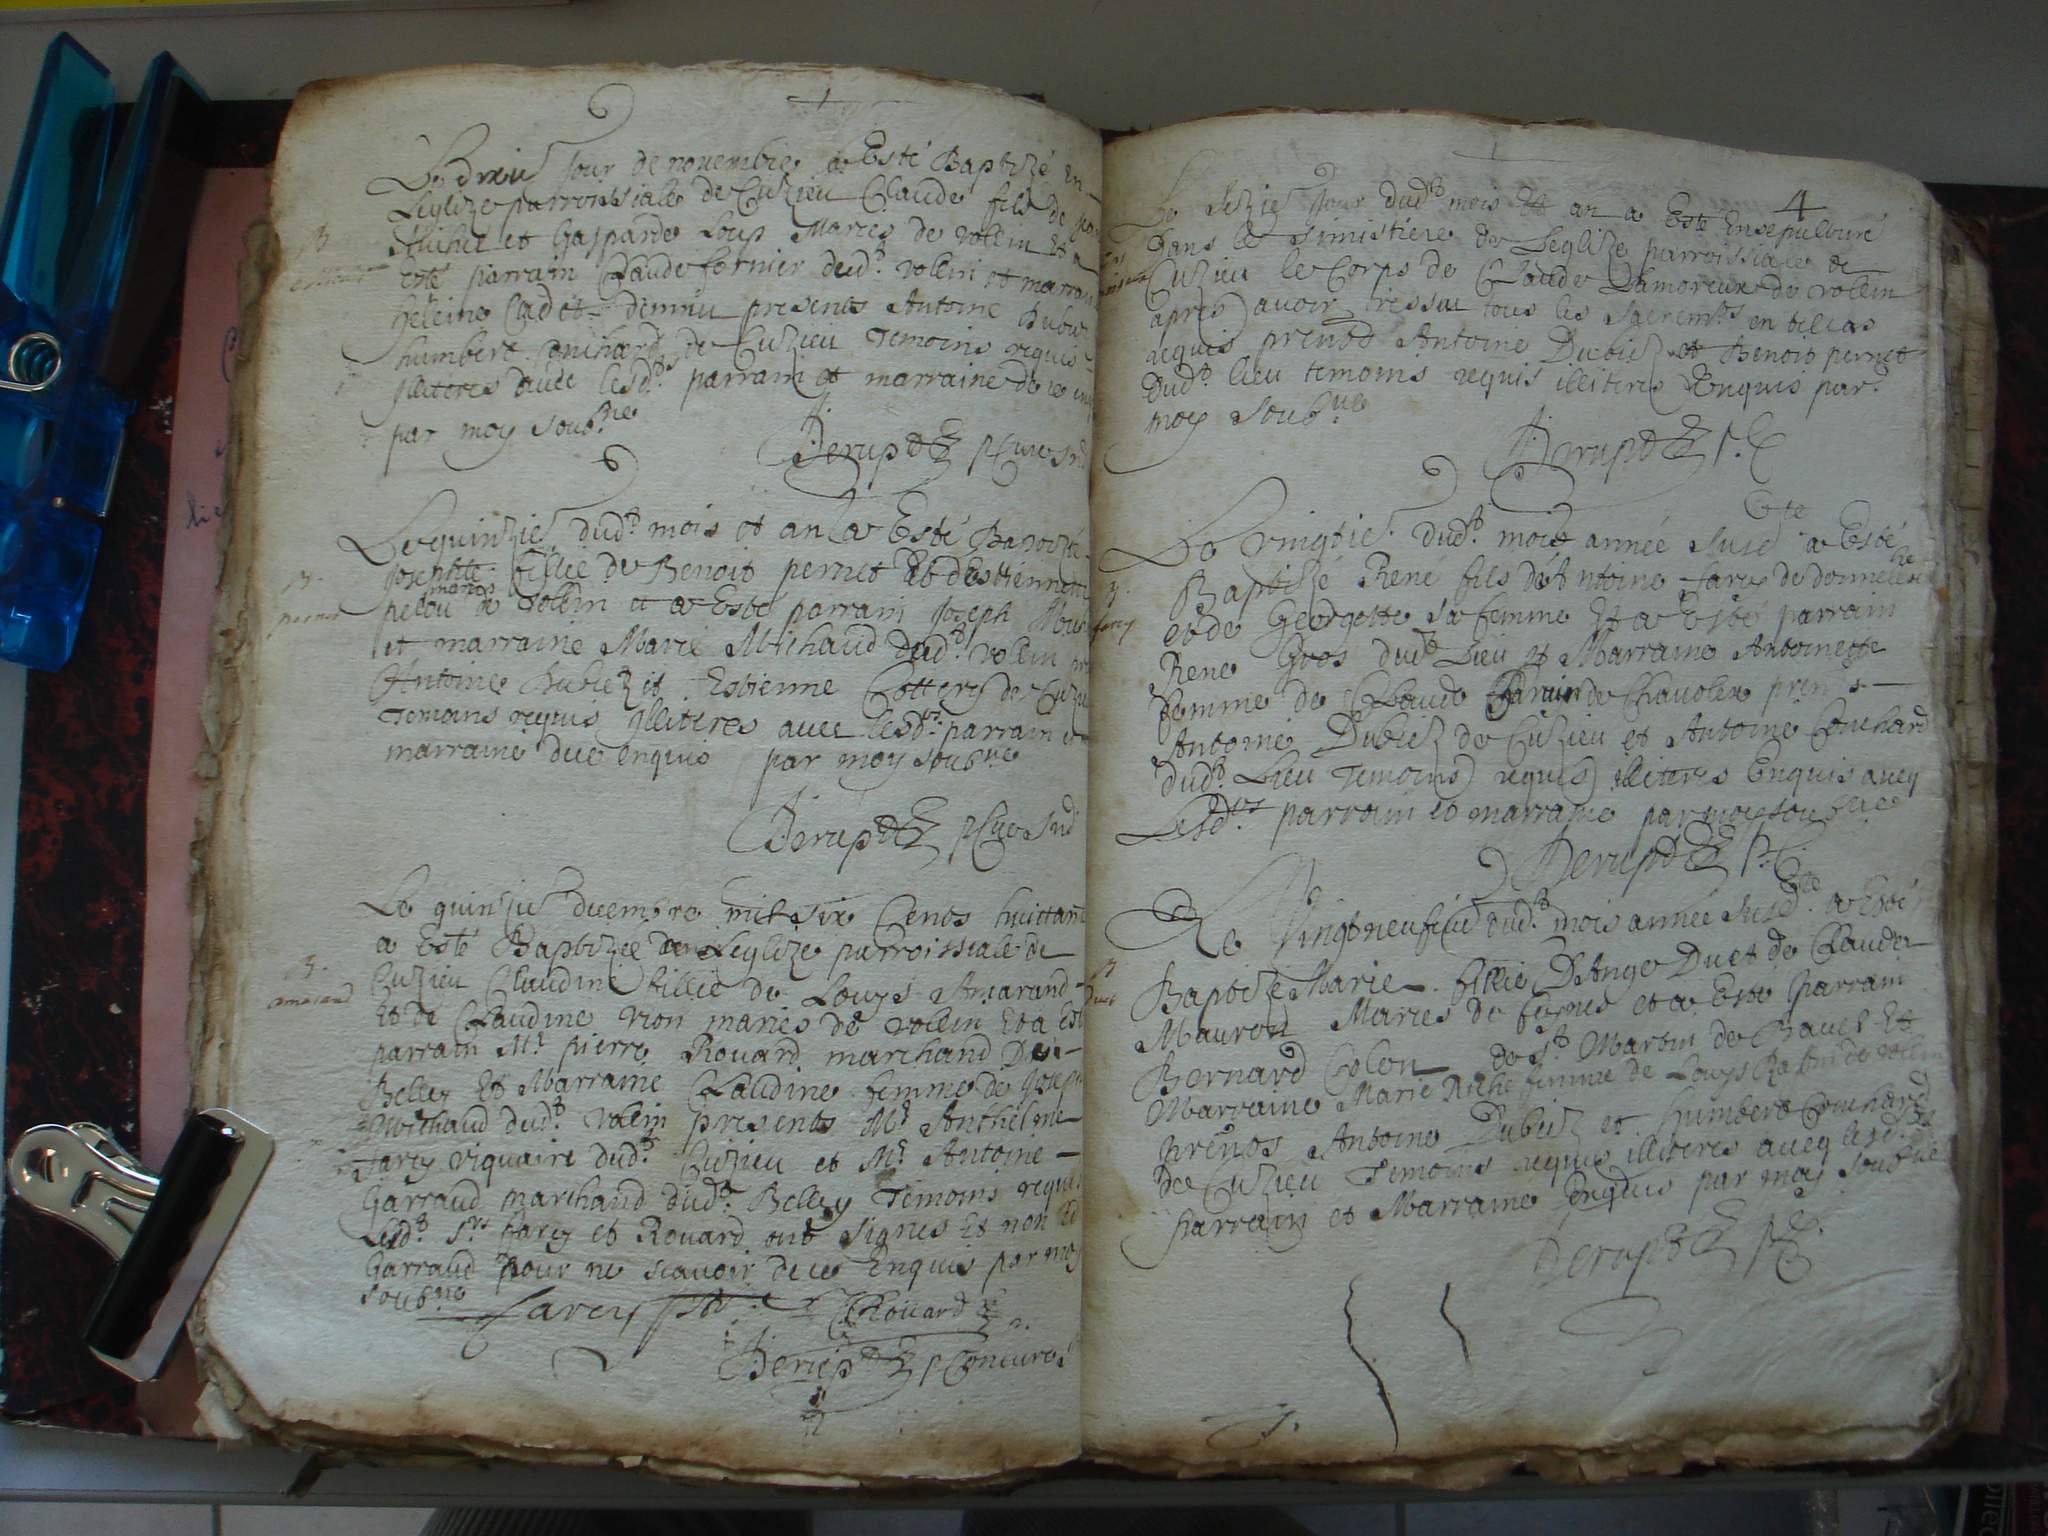 jour de novembre a Esté Baptizé en
Leglize parroissiale de Cuzieu Claude fils de
Michel et Gasparde Loup Maries de rollin Et a
B
esté parrain Claude fornier dud.t rollin et marraine
heleine Cadet presents Antoine Dubiez
humbert de Cuzieu Temoins requis
Illiteres avec lesd.ts parrain et marraine de ce enquis
par moy soub.ne
Derupt
Le quinzie dud.t mois et an a Esté Baptizée
Josephte fillie de Benoit pernet Et d'Estiennette
maries
B.
pernet
pelou de rollin et a Esté parrain Joseph
et marraine Marie Michaud dud.t rollin
Antoine Dubiez et Estienne Cottery de Cuzieu
Temoins requis Illiteres avec lesd.ts parrain et
marraine de ce enquis par moy soub.ne
Derupt
Le quinzie decembre mil six Cents huictante
a Esté Baptizée dans Leglize parroissiale de
B.
Cuzieu Claudine fillie de Louys Amarand
Et de Claudine rion maries de rollin Et a Esté
parrain M.r pierre Rouard marchand De
Belley Et Marraine Claudine femme de Joseph
Michaud dud.t rolein presents M.r Anthelme
farcy viquaire dud.t Cuzieu et M.r Antoine
Garraud marchand dud.t Belley Temoins requis
Lesd.t S.rs farcy et Rouard ont signes Et non led
Garraud pour ne scavoir de ce Enquis par moy
soub.ne
farcy Rouard
Derupt
4
Le sezie jour dud.t mois Et an a Esté Ensepulturé
dans le simistiere de Leglize parroissiale de
Cuzieu le Corps de Claude Lamoreux de rolein
apres avoir ressu tous les sacrem.ts en tel cas
requis pren.ts Antoine Dubiez et Benoit pernet
Dud.t lieu temoins requis illiteres Enquis par
moy soub.ne
Derupt
Le vingtie dud.t mois année susd.te a Esté
Baptizé Rene fils d'Antoine farcy de donneloche
B.
farcy
et de Georgette sa femme Et a Esté parrain
Rene Gros dud.t Lieu et Marraine Antoinette
femme de Claude de Chavolex pren.ts
Antoine Dubiez de Cuzieu et Antoine Couchard
dud.t Lieu Temoins requis illiteres Enquis avec
Lesd.ts parrain et marraine par moy soub.ne
Derupt
Le vingtneufie dud.t mois année susd.te a Esté
B
Duet
Baptizé Marie fillie D'Ange Duet de Claude
Mauron Maries de furnes et a Esté Parrain
Bernard Colon de S.t Martin de Bavel Et
Marraine Marie Riche femme de Louys Robin de rollin
pren.ts Antoine Dubiez et humbert Couchard
de Cuzieu Temoins requis illiteres avec lesd.ts
parrain et Marraine Enquis par moy soub.ne
Derupt